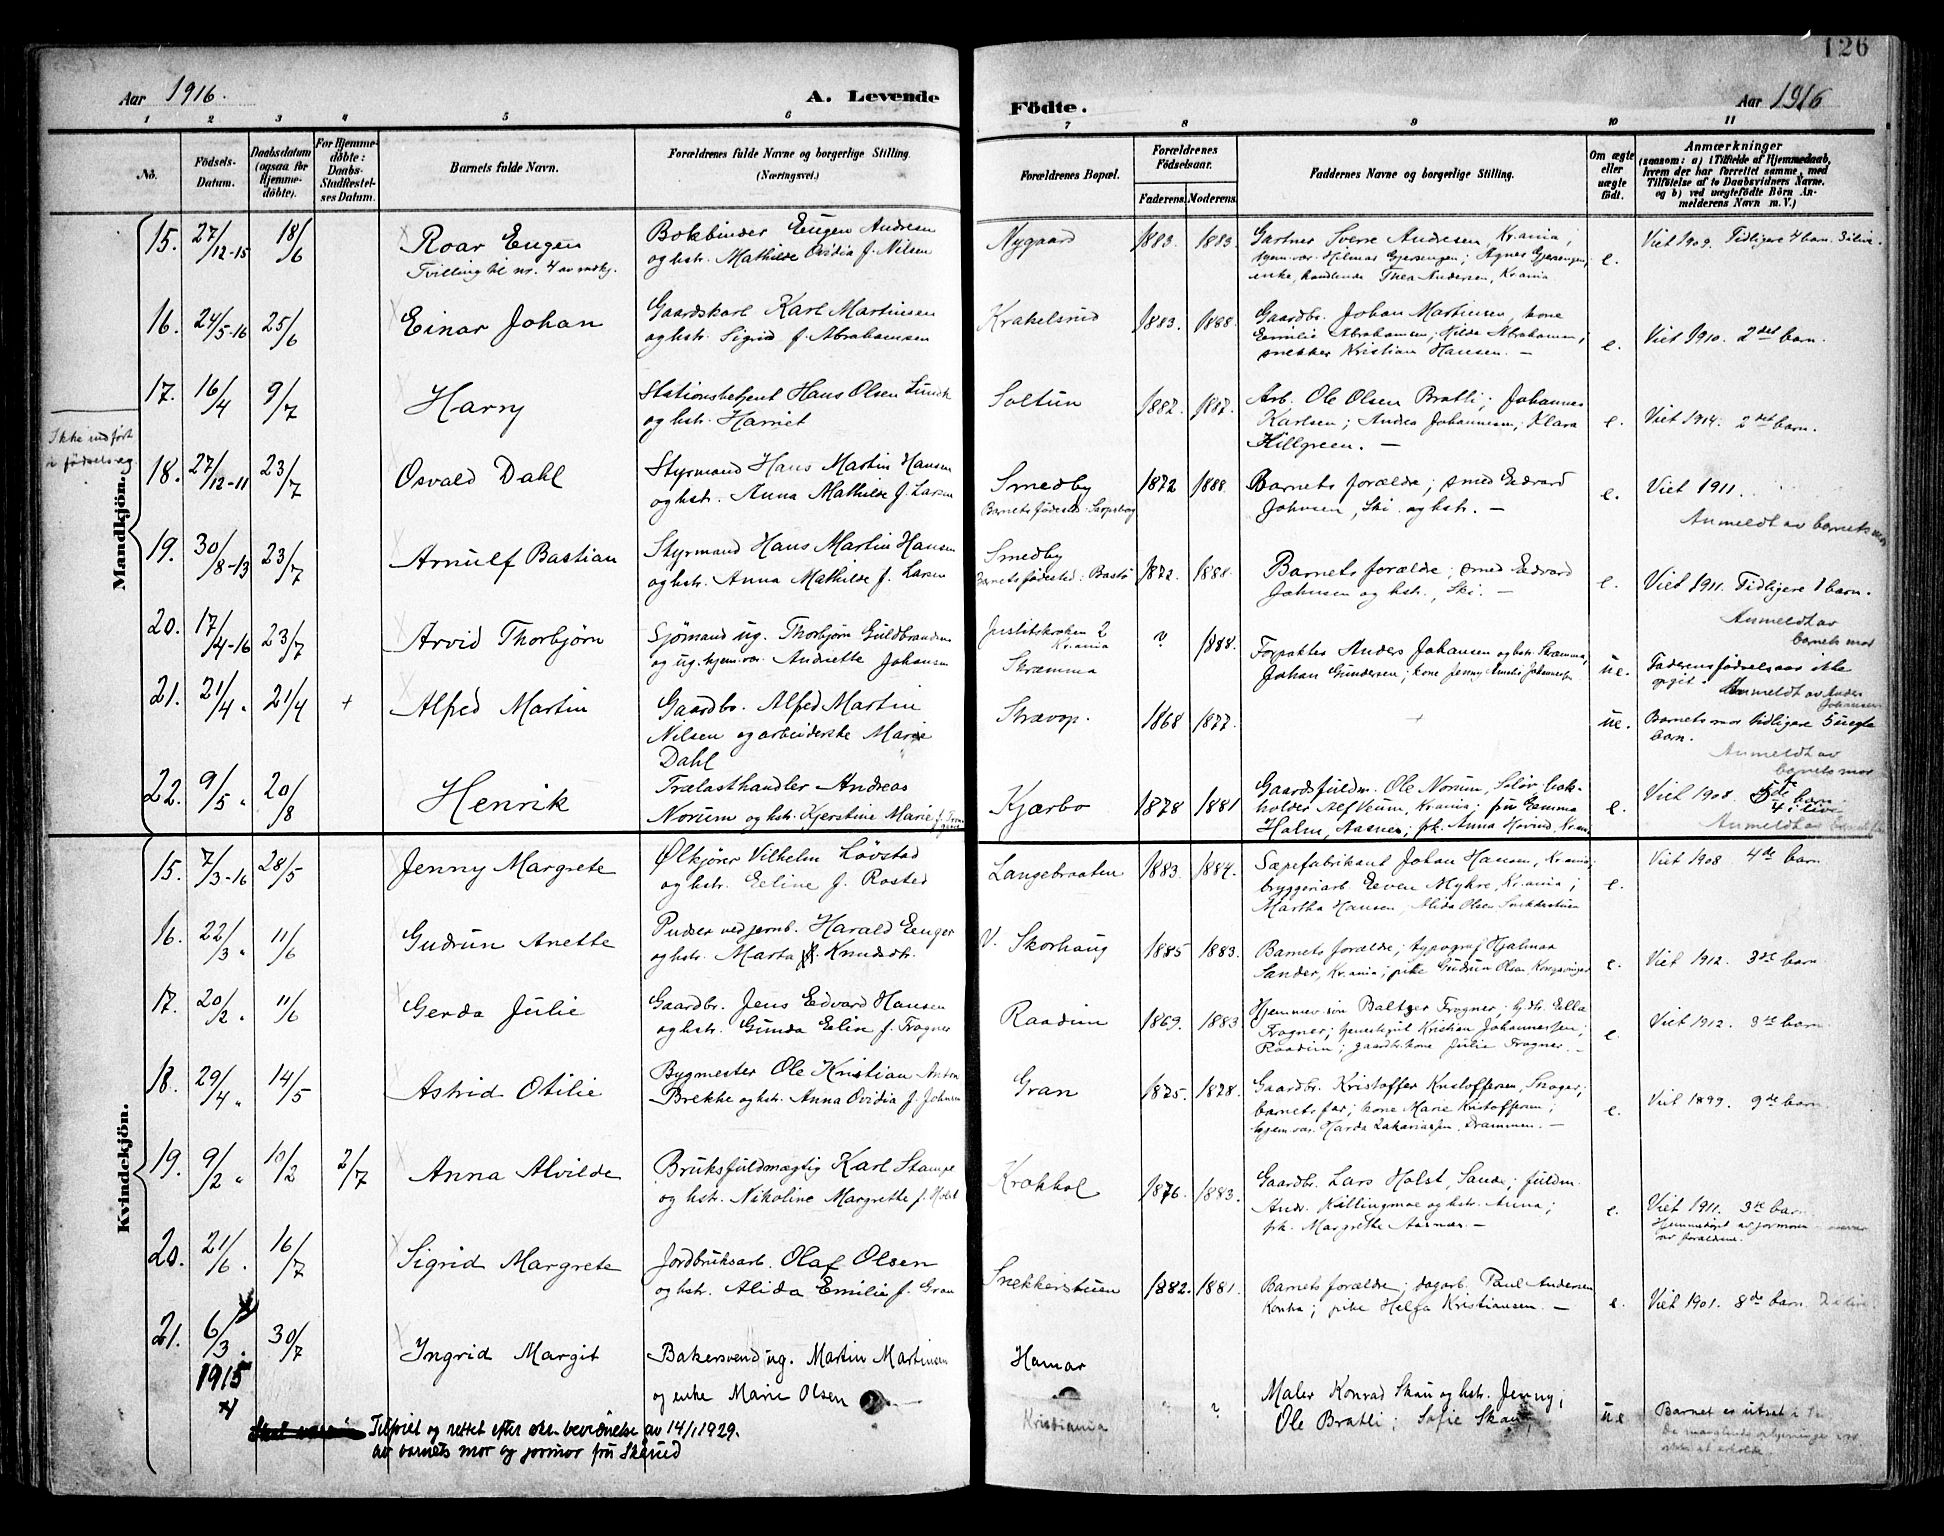 126
Aar 1916.
A. Levende
Födte.
Aar 1916
1 2 3 4 5 6 7 8 9 10 11
No.
Födsels-
Datum.
Daabsdatum
(ogsaa for
Hjemme-
döbte).
For Hjemme-
döbte:
Daabs-
Stadfæstel-
ses Datum.
Barnets fulde Navn.
Forældrenes fulde Navne og borgerlige Stilling.
(Næringsvei.)
Forældrenes Bopæl.
Forældrenes
Födselsaar.
Faderens. Moderens.
Faddernes Navne og borgerlige Stilling.
Om ægte
eller
uægte
födt.
Anmærkninger
(saasom: a) i Tilfælde af Hjemmedaab,
hvem der har forrettet samme, med
Tilföielse af to Daabsvidners Navne.
og b) ved uægtefödte Börn An-
melderens Navn m. V.)
Mandkjön.
15. 27/12-15 18/6 Roar Eugen Bokbinder Eugen Andresen Nygaard 1883. 1883. Gartner Sverre Andresen, Kr.ania; e. Viet 1909. Tidligere 4 barn. 3 i live.
Tvilling til nr. 4 av mdkj. og hstr. Mathilde Ovidia f. Nilsen
hjem.vær. Hilmas Gjersengen; Agnes Gjersengen;
enke, handlende Thea Andersen, Kr.ania
16. 24/5-16 25/6 Einar Johan Gaardskarl Karl Martinsen Krakelsrud 1883. 1888. Gaardbr. Johan Martinsen, kone e. Viet 1910. 2det barn.
og hstr. Sigrid f. Abrahamsen Emilie Abrahamsen; Hilda Abrahamsen;
snekker Kristian Hansen. —
17. 16/4 9/7 Harry Stationsbetjent Hans Olsen Lunde Soltun 1882. 1887. Arb. Ole Olsen Bratli; Johannes e. Viet 1914. 2det barn.
og hstr. Harriet Karlsen; Andrea Johannesen; Klara
Hillgreen. —
Ikke indført
i fødselsreg
18. 27/12-11 23/7 Osvald Dahl Styrmand Hans Martin Hansen Smedby 1872 1888. Barnets forældre; smed Edvard e. Viet 1911.
og hstr. Anna Mathilde f. Larsen Barnets fødested: Sarpsborg Johnsen, Ski og hstr. —
Anmeldt av barnets mor
19. 30/8-13 23/7 Arnulf Bastian Styrmand Hans Martin Hansen Smedby 1872. 1888. Barnets forældre; smed Edvard e. Viet 1911. Tidligere 1 barn.
og hstr. Anna Mathilde f. Larsen Barnets fødested: Bastö Johnsen og hstr., Ski. —
Anmeldt av
barnets mor
20. 17/4-16 23/7 Arvid Thorbjørn Sjømand ug. Thorbjørn Guldbrandsen Justitskroken 2 ? 1888. Forpakter Anders Johansen og hstr. Skræmma, ue. Faderens fødselsaar ikke
og ug. hjem.vær. Andriette Johansen Kr.ania
Skræmma Johan Gundersen; kone Jenny Amalie Johannessen opgit.
Anmeldt av Anders
Johansen
21. 21/4 " 21/4 + Alfred Martin Gaardbr. Alfred Martin Strævop. 1868 1877. + ue. Barnets mor tidligere 5 uegte
Nilsen og arbeiderske Marie barn.
Dahl Anmeldt av
barnets mor
22. 9/5 " 20/8 Henrik Trælasthandler Andreas Kjærbo 1878 1881 Gaardsfuldm. Ole Norum, Solør; e. Viet 1908. 5te barn.
Norum og hstr. Kjerstine Marie Leif Veum, Kr.ania; fru Gemma 4 i live
Holm, Aasnes; frk. Anna Hovind, Kr.an. Anmeldt av
Kvindekjön.
15. 7/3-16 28/5 Jenny Margrete Ølkjører Vilhelm Løvstad Langebraaten 1883. 1884. Sæpefabrikant Johan Hansen, Kr.ania; e. Viet 1908 4de barn
og hstr. Eline f. Rosted bryggeriarb. Even Myhre, Kr.ania;
Martha Hansen, Alida Olsen Snekkerstuen
16. 22/3 " 11/6 Gudrun Anette Pudser ved jernb. Harald Enger V. Skorhaug 1885 1883. Barnets forældre; typograf Hjalmar e. Viet 1912. 3de barn
og hstr. Marta f. Knudsdtr. Sander, Kr.ania; pike Gudrun Olsen Kongsvinger
17. 20/2 " 11/6 Gerda Julie Gaardbr. Jens Edvard Hansen Raadim 1869. 1883. Hjemmev. søn Baltzer Frogner; hjv. Ella e. Viet 1912. 3de barn
og hstr. Gunda Elin f. Frogner Frogner; tjenestegut Kristian Johannessen;
Raadim; gaardbr.kone Julie Frogner. —
18. 29/4 " 14/5 Astrid Otilie Bygmester Ole Kristian Anton Gran 1875. 1878. Gaardbr. Kristoffer Kristoffersen, Skoger; e. Viet 1899. 9de barn.
Brekke og hstr. Anna Ovidia f. Johnsen barnets far; kone Marie Kristoffersen;
hjem.vær. Harda Zakariassen, Drammen. —
19. 9/2 " 10/2 2/7 Anna Alvilde Bruksfuldmægtig Karl Stampe Krokhol 1876. 1883. Gaardbr. Lars Holst, Sande; fuldm. e. Viet 1911. 3de barn.
og hstr. Nikoline Margrethe f. Holst Andr. Killingmoe og hstr. Anna; Hjemmedøpt av jormor
frk. Margrethe Aasnæs. — av forældrene.
20. 21/6. 16/7 Sigrid Margrete Jordbruksarb. Olaf Olsen Snekkerstuen 1882. 1881. Barnets forældre; dagarb. Paul Andersen e. Viet 1901. 8de barn. 7 i live.
og hstr. Alida Emilie f. Gran Kontra; pike Helga Kristiansen. —
21. 6/3. 30/7 Ingrid Margit Bakersvend ug. Martin Martinsen Hamar " ? Maler Konrad Skau og hstr. Jenny; ue Barnet er utsat i
1915 og enke Marie Olsen Kristiania Ole Bratli; Sofie Skau; De manglende oplysninger
ikke at erholde
Tilføiet og rettet efter skr. bevidnelse av 14/1 1929.
av barnets mor og jormor fru Skerud